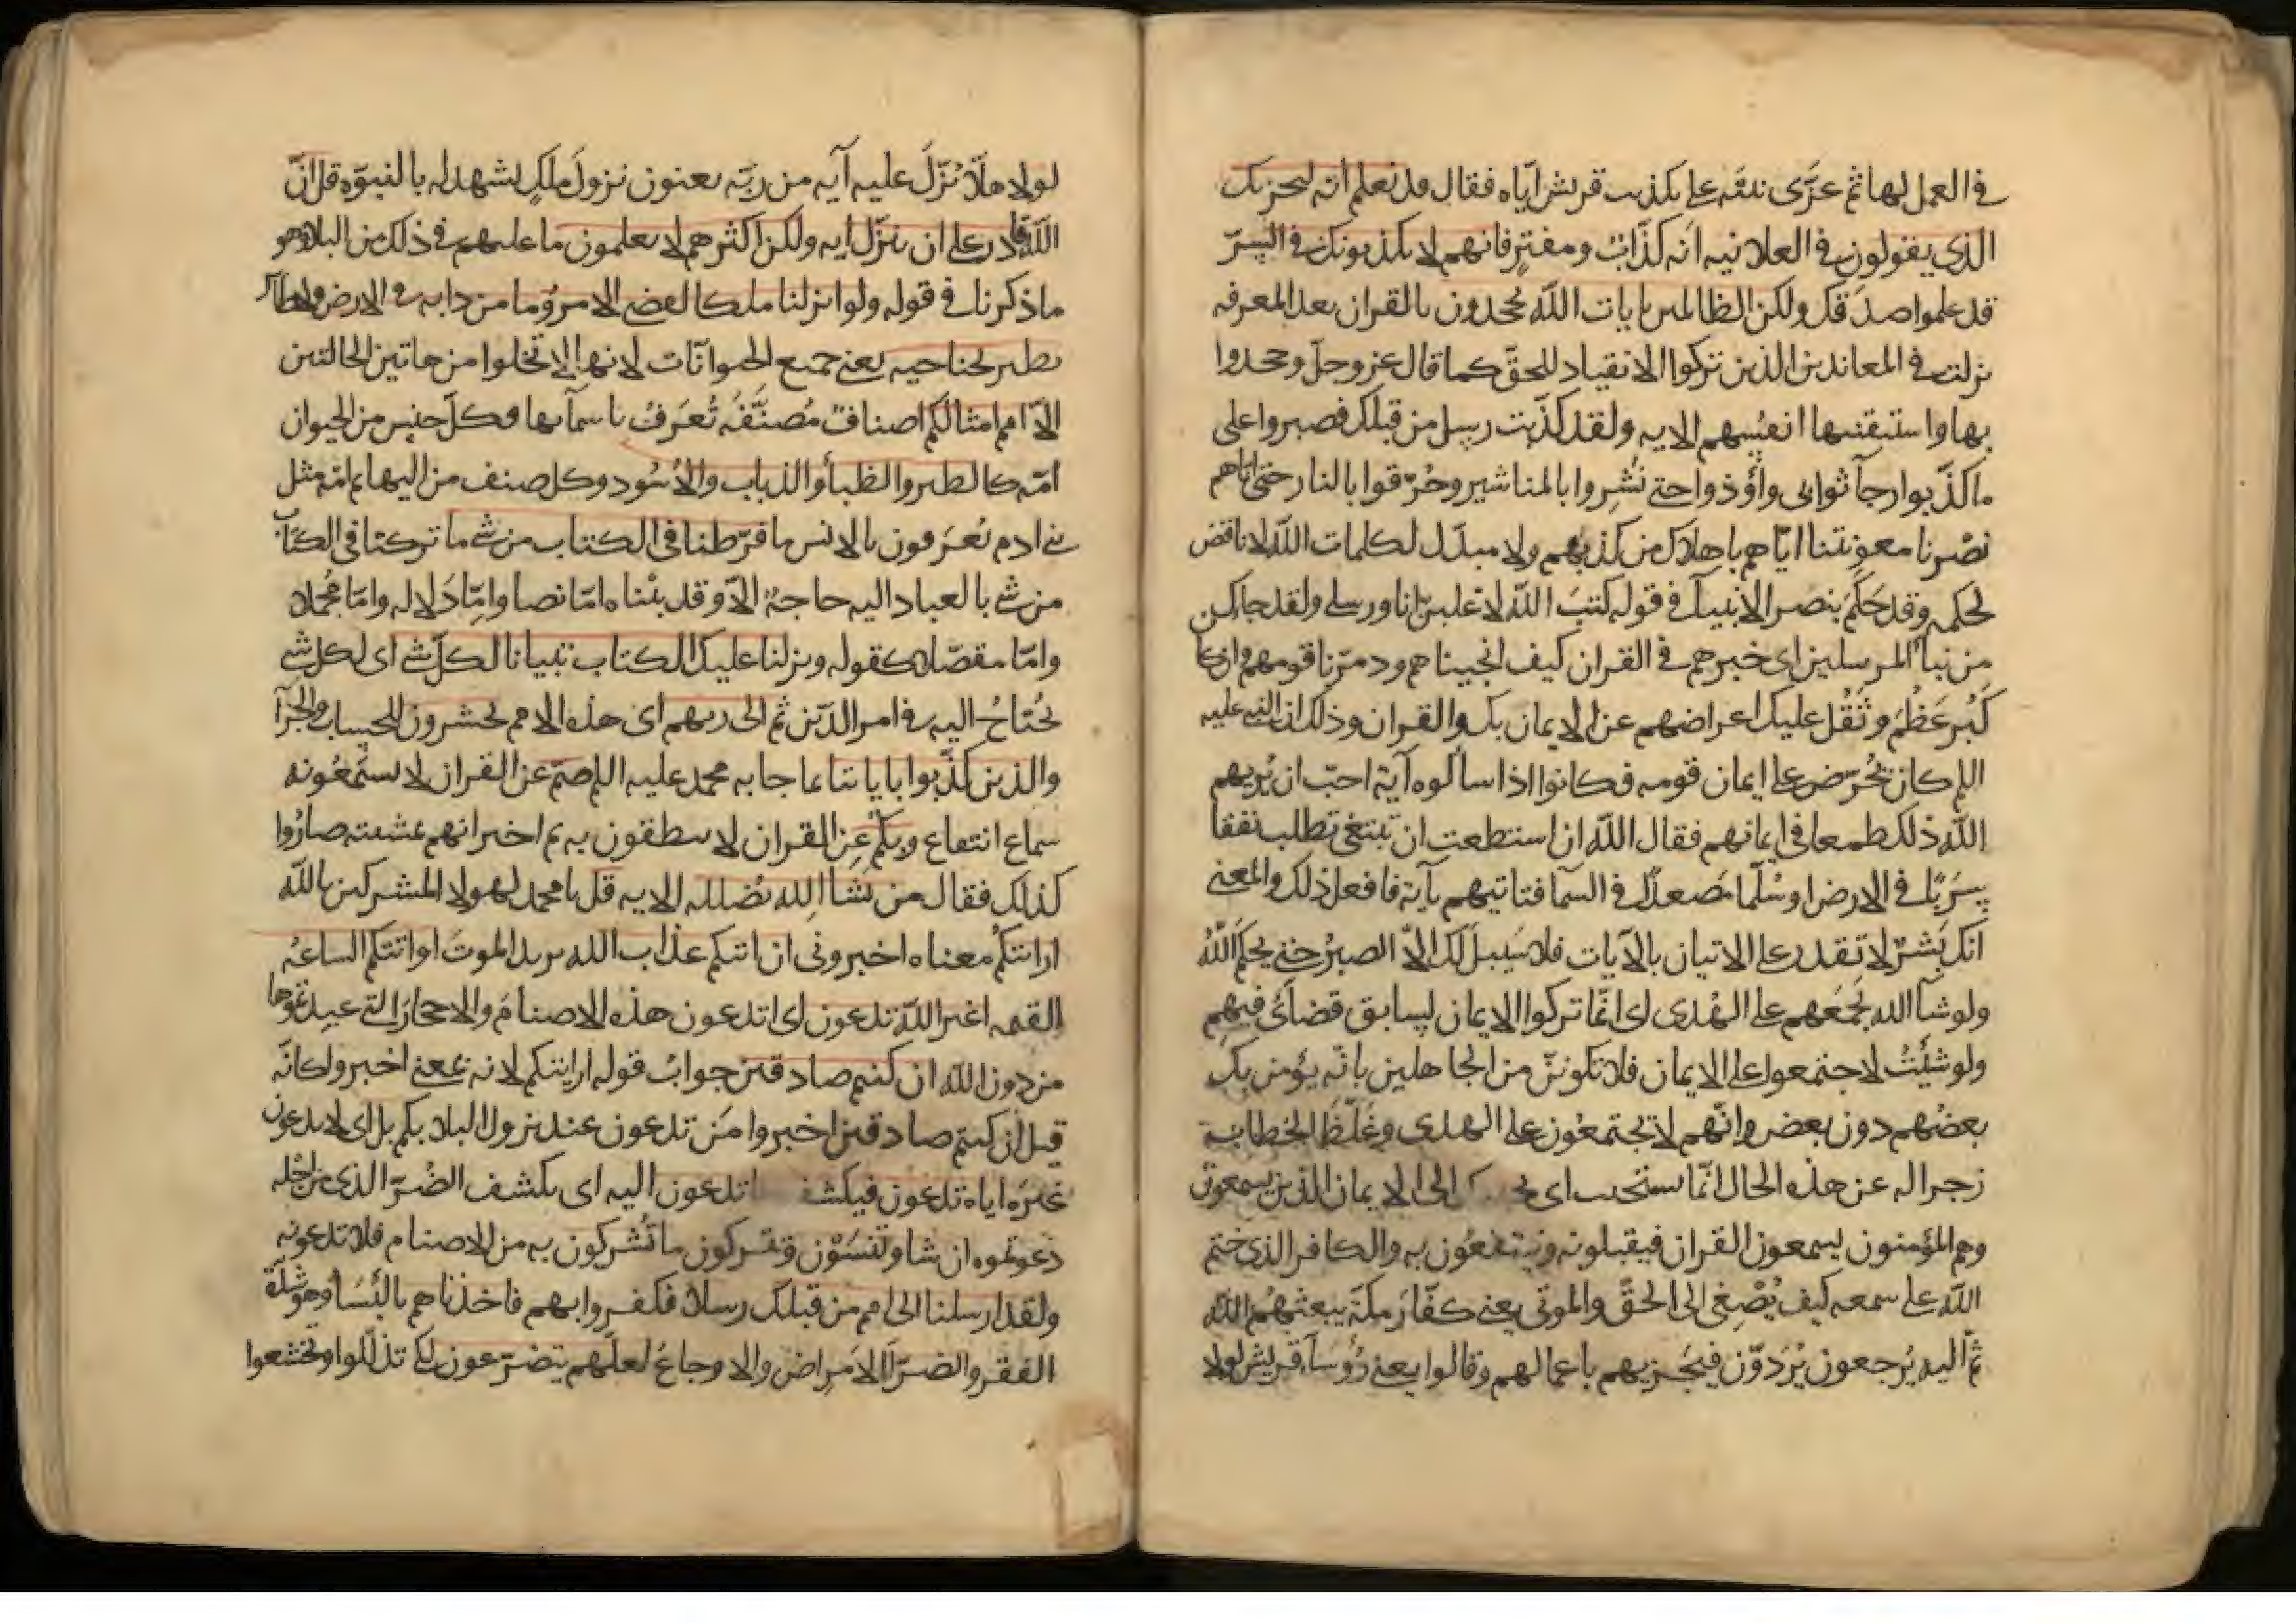 في العمل لها ثم عزّى نبيّه على تكذيب قريش ايّاه فقال قد نعلم انه ليحزنك
الذي يقولون في العلانيه انه كذّاب ومفترٍ فانهم لا يكذبونك في السرّ
قد علموا صدقك ولكن الظالمين بايات اللّه يجحدون بالقران بعد المعرفه
نزلت في المعاندين الذين تركوا الانقياد للحقّ كما قال عز وجلّ وجحدوا
بها واستيقنتها انفسهم الايه ولقد كذّبت رسل من قبلك فصبروا على
ما كذّبوا رجآ ثوابي وأوذوا حتى نُشِروا بالمناشير وحُرّقوا بالنار حتى اتاهم
نصْرنا معونتنا ايّاهم باهلاك من كذبهم ولا مبدّل لكلمات اللّه لا ناقض
لحكمه وقد حَكَمَ بنصر الانبيآ في قوله كتبَ اللّه لاغلبنّ انا ورسلي ولقد جاك
من نبأ المرسلين اى خبرهم في القران كيف انجيناهم ودمّرنا قومهم وان كان
كَبُر عَظُمَ وثَقُل عليك اعراضهم عن الايمان بك والقران وذلك ان النبي عليه
السلم كان يحُرّض على ايمان قومه فكانوا اذا سألوه آية احبّ ان يُريهم
اللّه ذلك طمعا في ايمانهم فقال اللّه ان استطعت ان تبتغي تطلب نفقا
سَرَبًا في الارض او سُلّما تصعدًا في السمآ فتاتيهم بآية فافعل ذلك والمعني
انك بَشَرٌ لا تقدر على الاتيان بالآيات فلا سَبيلَ لك الاّ الصبرُ حتى يحكم اللّهُ
ولو شآ اللّه لجمَعهم على الهُدى اى انما تركوا الايمان لسابق قضآئ فيهم
ولو شئتُ لاجتمعوا على الايمان فلا تكوننّ من الجاهلين بانّه يؤمن بك
بعضُهم دون بعض وانّهم لا يجتمعُون على الهدى وغَلّظَ الخطاب
زجرا له عن هذه الحال انّما يستجيب اى الى الايمان الذين يسمعون
وهم المؤمنون يسمعون القران فيقبلونه وينتفعُون به والكافر الذي ختم
اللّه على سمعه كيف يُصْغي الى الحقّ والموتى يعني كفّارَ مكّة يبعثهُم اللّه
ثمّ اليه يُرجعون يُرَدّون فيجَزيهم باعمالهم وقالوا يعني رُؤسَآ قريش لولا
لولا هلاّ نُزّلَ عليه آيه من ربّه يعنون نزولَ ملكٍ يشهد له بالنبوّه قل انّ
اللّه قادر على ان ينزّل ايه ولكن اكثرهم لا يعلمون ما عليهم في ذلك من البلا وهو
ما ذكرنا في قوله ولو انزلنا ملكا لقضي الامر وما من دابه في الارض ولا طائر
يطير بجناحيه يعني جميع الحيوانات لانها لا تخلوا من هاتين الحالتين
الاّ امم امثالكم اصناف مُصَنَّفَه تُعرَف باسمآئها فكلّ جنس من الحيوان
امّه كالطير والظبأ والذباب والاُسُود وكل صنف من البهايم امّه مثل
بني ادم يُعرَفون بالانس ما فرّطنا في الكتاب من شي ما تركنا في الكتاب
من شي بالعباد اليه حاجةٌ الاّ وقد بيّناه امّا نصا وامّا دَلاله وامّا مُجملا
وامّا مفصّلا كقوله ونزلنا عليك الكتاب تبيانا لكلّ شي اى لكل شي
يُحتاجُ اليه في امر الدّين ثم الى ربهم اى هذه الامم يحشرون للحساب والجزآ
والذين كذّبوا باياتنا بما جا به محمد عليه السلم صمّ عن القران لا يستمعُونه
سماع انتفاع وبكم عن القران لا ينطقون به ثم اخبر انهم بمشيته صارُوا
كذلك فقال من يشا اللّه يُضلله الايه قل يا محمد لهولا المشركين باللّه
ارايتكُم معناه اخبروني ان اتتكم عذاب اللّه يريد الموتَ او اتتكم الساعةُ
القيمه اغير اللّه تدعون اى اتدعون هذه الاصنامَ والاحجارَ التي عبدتموها
من دون اللّه ان كنتم صادقين جوابُ قوله ارايتكم لانه بمعنى اخبروا كانّه
قيل ان كنتم صادقين اخبروا مَن تدعون عند نزول البلا بكم بل اى لا تدعون
غيرَه اياه تدعون فيكشف ما تدعون اليه اى يكشف الضُرّ الذي من اجله
دعوتموه ان شا وتَنسَوْن وتتركون ما تُشركون به من الاصنام فلا تدعونه
ولقد ارسلنا الى امم من قبلك رسلا فكفروا بهم فاخذناهم بالبأسا وهو شدّة
الفقر والضرّآ الامراض والاوجاعُ لعلّهم يتضرّعون لكي تذلّلوا وتخشعوا